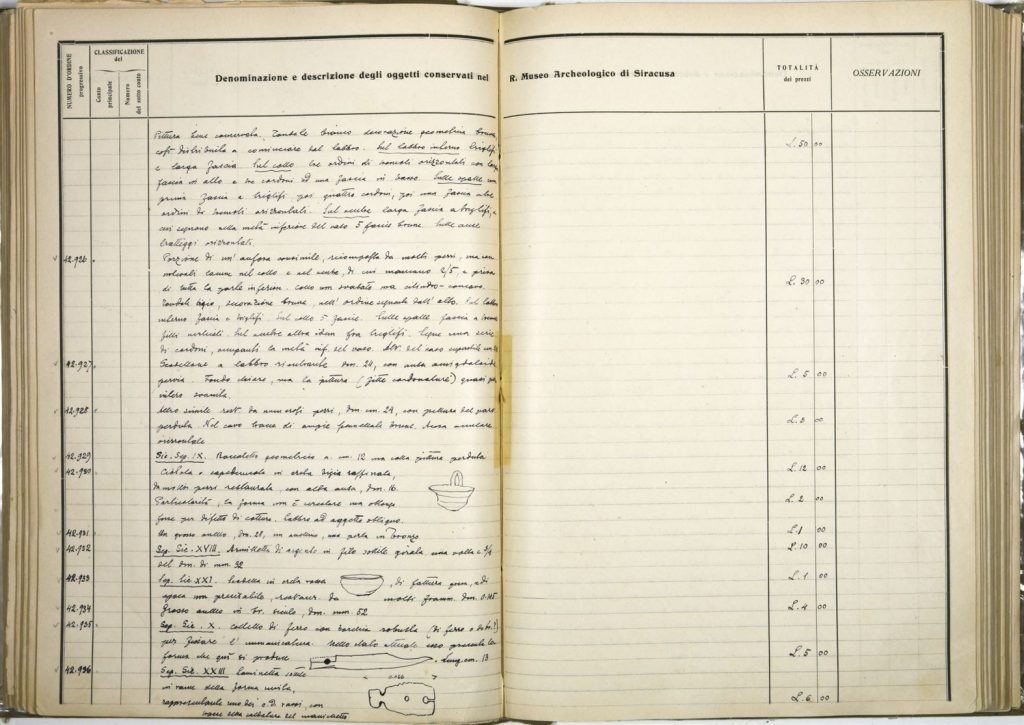 NUMERO D'ORDINE progressivo
CLASSIFICAZIONE del
Conto principale
Numero del sotto conto
Denominazione e descrizione degli oggetti conservati nel R. Museo Archeologico di Siracusa
TOTALITÀ dei prezzi
OSSERVAZIONI
Pittura bene conservata. Fondo bianco decorazione geometrica bruna L. 50 00
così distribuita a cominciare dal labbro. Sul labbro interno triglifi
e larga fascia. Sul collo tre ordini di orizzontali con larga
fascia in alto e tre cordoni ed una fascia in basso. Sulle spalle una
prima fascia a triglifi, poi quattro cordoni, poi una fascia a tre
ordini di orizzontali. Sul ventre larga fascia a triglifi, e
nella metà inferiore del vaso 5 fascie brune. Sulle anse
tratteggi orizzontali.
42.926 Porzione di un' anfora consimile, ricomposta da molti pezzi, ma con
lacune nel collo e nel ventre, di cui mancano 2/5, e priva
di tutta la parte inferiore. Collo non svasato ma cilindro-concavo. L. 30 00
decorazione bruna, nell' ordine seguente dall' alto. Sul labbro
interno fascia e triglifi. Sul collo 5 fascie. Sulle spalle fascia a
verticali. Sul ventre altra idem fra triglifi. Segue una serie
di cordoni, occupanti la metà inf. del vaso. Alt. del vaso
42.927 Scodellone a labbro rientrante dm. 24, con ansa L. 5 00
pervia. Fondo chiaro, ma la pittura quasi per
intero svanita.
42.928 Altro simile rest. da numerosi pezzi, dm. cm. 24, con pittura del pari L. 3 00
perduta. Nel cavo tracce di ampie
orizzontale
42.929 Sic. Sep. IX. geometrico a. cm. 12 ma colla pittura perduta L. 12 00
42.930 Ciotola o capeduncola in creta bigia raffinata,
da molti pezzi restaurata, con alta ansa, dm. 16. L. 2 00
Particolarità, la forma non è circolare ma oblunga
forse per difetto di cottura. Labbro ad aggetto obliquo.
42.931 Un grosso anello, dm. 28, un anellino, una perla in bronzo L. 1 00
42.932 Sep. Sic. XVIII. Armilletta di argento in filo sottile girata una volta e 3/4 L. 10 00
del dm. di mm. 32
42.933 Sep. Sic XXI. Scodella in creta rossa , di fattura , e di L. 1 00
epoca non precisabile, restaur. da molti framm. dm. 0.165
42.934 Grosso anello in br. siculo, dm. mm. 52 L. 4 00
42.935 Sep. Sic. X. Coltello di ferro con robusta (di ferro o di br.?)
per fissare l' immanicatura. Nello stato attuale esso presenta la
forma che qui si produce , lung. cm. 13 L. 5 00
42.936 Sep. Sic. XXIII. Laminetta
in rame della forma unita,
rappresentante uno dei c.d. rasoi, con L. 6 00
tracce della saldatura del manichetto